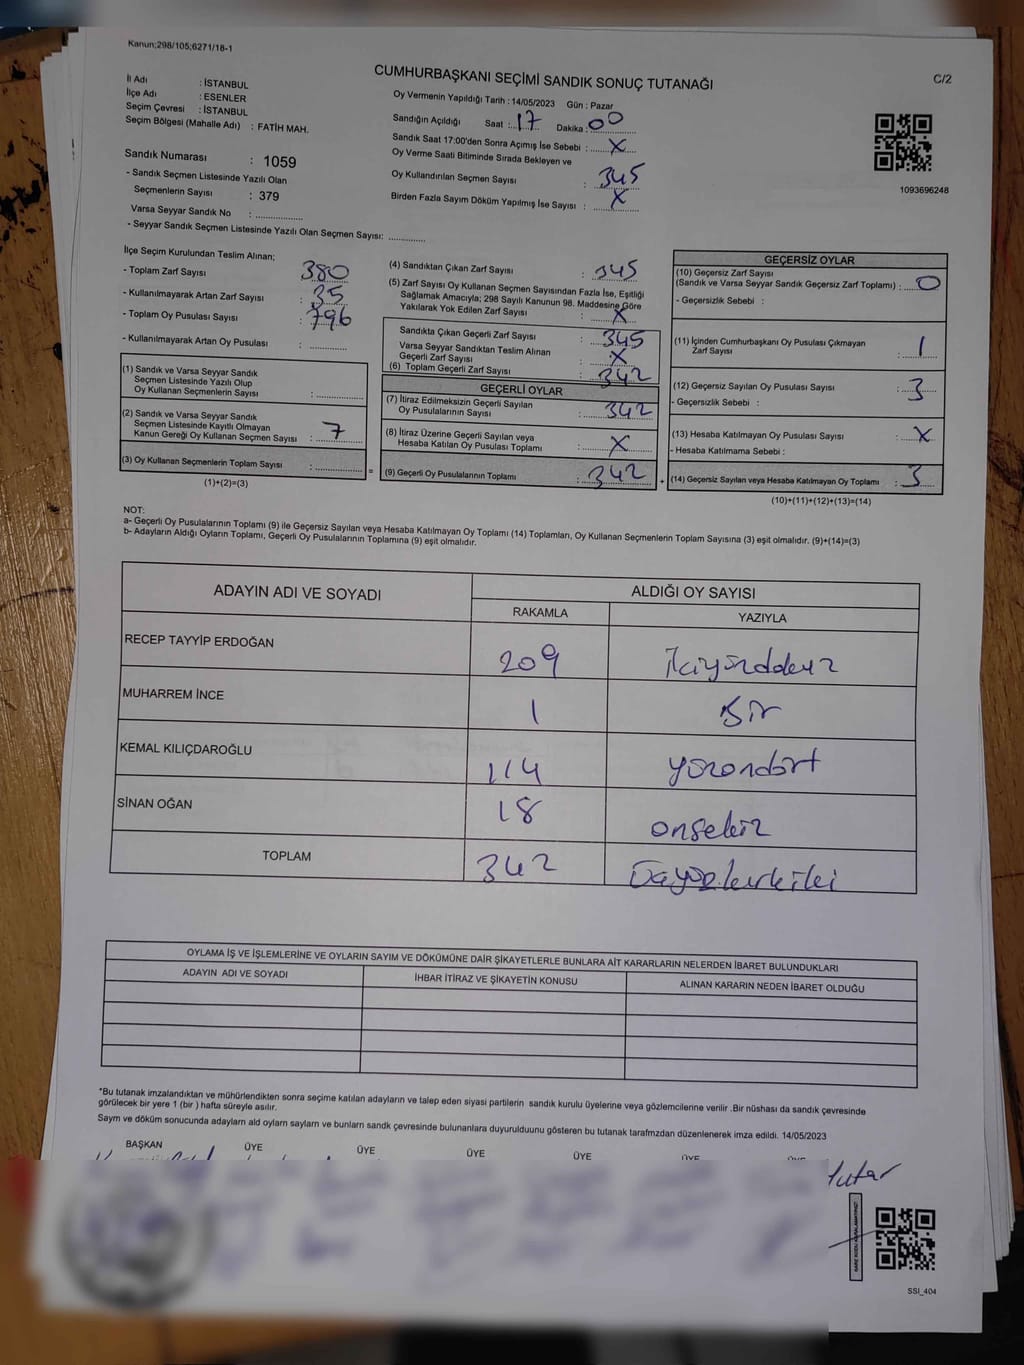 Kanun;298/105;6271/18-1
CUMHURBAŞKANI SEÇİMİ SANDIK SONUÇ TUTANAĞI
C/2
İl Adı : İSTANBUL
İlçe Adı : ESENLER
Seçim Çevresi : İSTANBUL
Seçim Bölgesi (Mahalle Adı) : FATİH MAH.
Sandık Numarası : 1059
- Sandık Seçmen Listesinde Yazılı Olan
Seçmenlerin Sayısı : 379
Varsa Seyyar Sandık No : ..............
- Seyyar Sandık Seçmen Listesinde Yazılı Olan Seçmen Sayısı: ............
Oy Vermenin Yapıldığı Tarih : 14/05/2023 Gün : Pazar
Sandığın Açıldığı Saat : 17 Dakika : 00
Sandık Saat 17:00'den Sonra Açımış İse Sebebi : X
Oy Verme Saati Bitiminde Sırada Bekleyen ve
Oy Kullandırılan Seçmen Sayısı : 345
Birden Fazla Sayım Döküm Yapılmış İse Sayısı : X
1093696248
İlçe Seçim Kurulundan Teslim Alınan;
- Toplam Zarf Sayısı 380
- Kullanılmayarak Artan Zarf Sayısı : 35
- Toplam Oy Pusulası Sayısı : 796
- Kullanılmayarak Artan Oy Pusulası : ............
(1) Sandık ve Varsa Seyyar Sandık
Seçmen Listesinde Yazılı Olup
Oy Kullanan Seçmenlerin Sayısı : ...............
(2) Sandık ve Varsa Seyyar Sandık
Seçmen Listesinde Kayıtlı Olmayan
Kanun Gereği Oy Kullanan Seçmen Sayısı : 7
(3) Oy Kullanan Seçmenlerin Toplam Sayısı : ...............
(1)+(2)=(3)
=
(4) Sandıktan Çıkan Zarf Sayısı : 345
(5) Zarf Sayısı Oy Kullanan Seçmen Sayısından Fazla İse, Eşitliği
Sağlamak Amacıyla; 298 Sayılı Kanunun 98. Maddesine Göre
Yakılarak Yok Edilen Zarf Sayısı : X
Sandıkta Çıkan Geçerli Zarf Sayısı : 345
Varsa Seyyar Sandıktan Teslim Alınan
Geçerli Zarf Sayısı : X
(6) Toplam Geçerli Zarf Sayısı : 342
GEÇERLİ OYLAR
(7) İtiraz Edilmeksizin Geçerli Sayılan
Oy Pusulalarının Sayısı : 342
(8) İtiraz Üzerine Geçerli Sayılan veya
Hesaba Katılan Oy Pusulası Toplamı : X
(9) Geçerli Oy Pusulalarının Toplamı : 342
+
GEÇERSİZ OYLAR
(10) Geçersiz Zarf Sayısı
(Sandık ve Varsa Seyyar Sandık Geçersiz Zarf Toplamı) : 0
- Geçersizlik Sebebi :
(11) İçinden Cumhurbaşkanı Oy Pusulası Çıkmayan
Zarf Sayısı : 1
(12) Geçersiz Sayılan Oy Pusulası Sayısı : 3
- Geçersizlik Sebebi :
(13) Hesaba Katılmayan Oy Pusulası Sayısı : X
- Hesaba Katılmama Sebebi :
(14) Geçersiz Sayılan veya Hesaba Katılmayan Oy Toplamı : 3
(10)+(11)+(12)+(13)=(14)
NOT:
a- Geçerli Oy Pusulalarının Toplamı (9) ile Geçersiz Sayılan veya Hesaba Katılmayan Oy Toplamı (14) Toplamları, Oy Kullanan Seçmenlerin Toplam Sayısına (3) eşit olmalıdır. (9)+(14)=(3)
b- Adayların Aldığı Oyların Toplamı, Geçerli Oy Pusulalarının Toplamına (9) eşit olmalıdır.
ADAYIN ADI VE SOYADI
ALDIĞI OY SAYISI
RAKAMLA YAZIYLA
RECEP TAYYİP ERDOĞAN 209 ikiyüzdokuz
MUHARREM İNCE 1 Bir
KEMAL KILIÇDAROĞLU 114 yüzondört
SİNAN OĞAN 18 onsekiz
TOPLAM 342 Üçyüzkırkiki
OYLAMA İŞ VE İŞLEMLERİNE VE OYLARIN SAYIM VE DÖKÜMÜNE DAİR ŞİKAYETLERLE BUNLARA AİT KARARLARIN NELERDEN İBARET BULUNDUKLARI
ADAYIN ADI VE SOYADI İHBAR İTİRAZ VE ŞİKAYETİN KONUSU ALINAN KARARIN NEDEN İBARET OLDUĞU
*Bu tutanak imzalandıktan ve mühürlendikten sonra seçime katılan adayların ve talep eden siyasi partilerin sandık kurulu üyelerine veya gözlemcilerine verilir .Bir nüshası da sandık çevresinde
görülecek bir yere 1 (bir ) hafta süreyle asılır.
Sayım ve döküm sonucunda adayların ald oyların sayların ve bunların sandk çevresinde bulunanlara duyurulduunu gösteren bu tutanak tarafmzdan düzenlenerek imza edildi. 14/05/2023
BAŞKAN ÜYE ÜYE ÜYE ÜYE ÜYE ÜYE
SSI_404